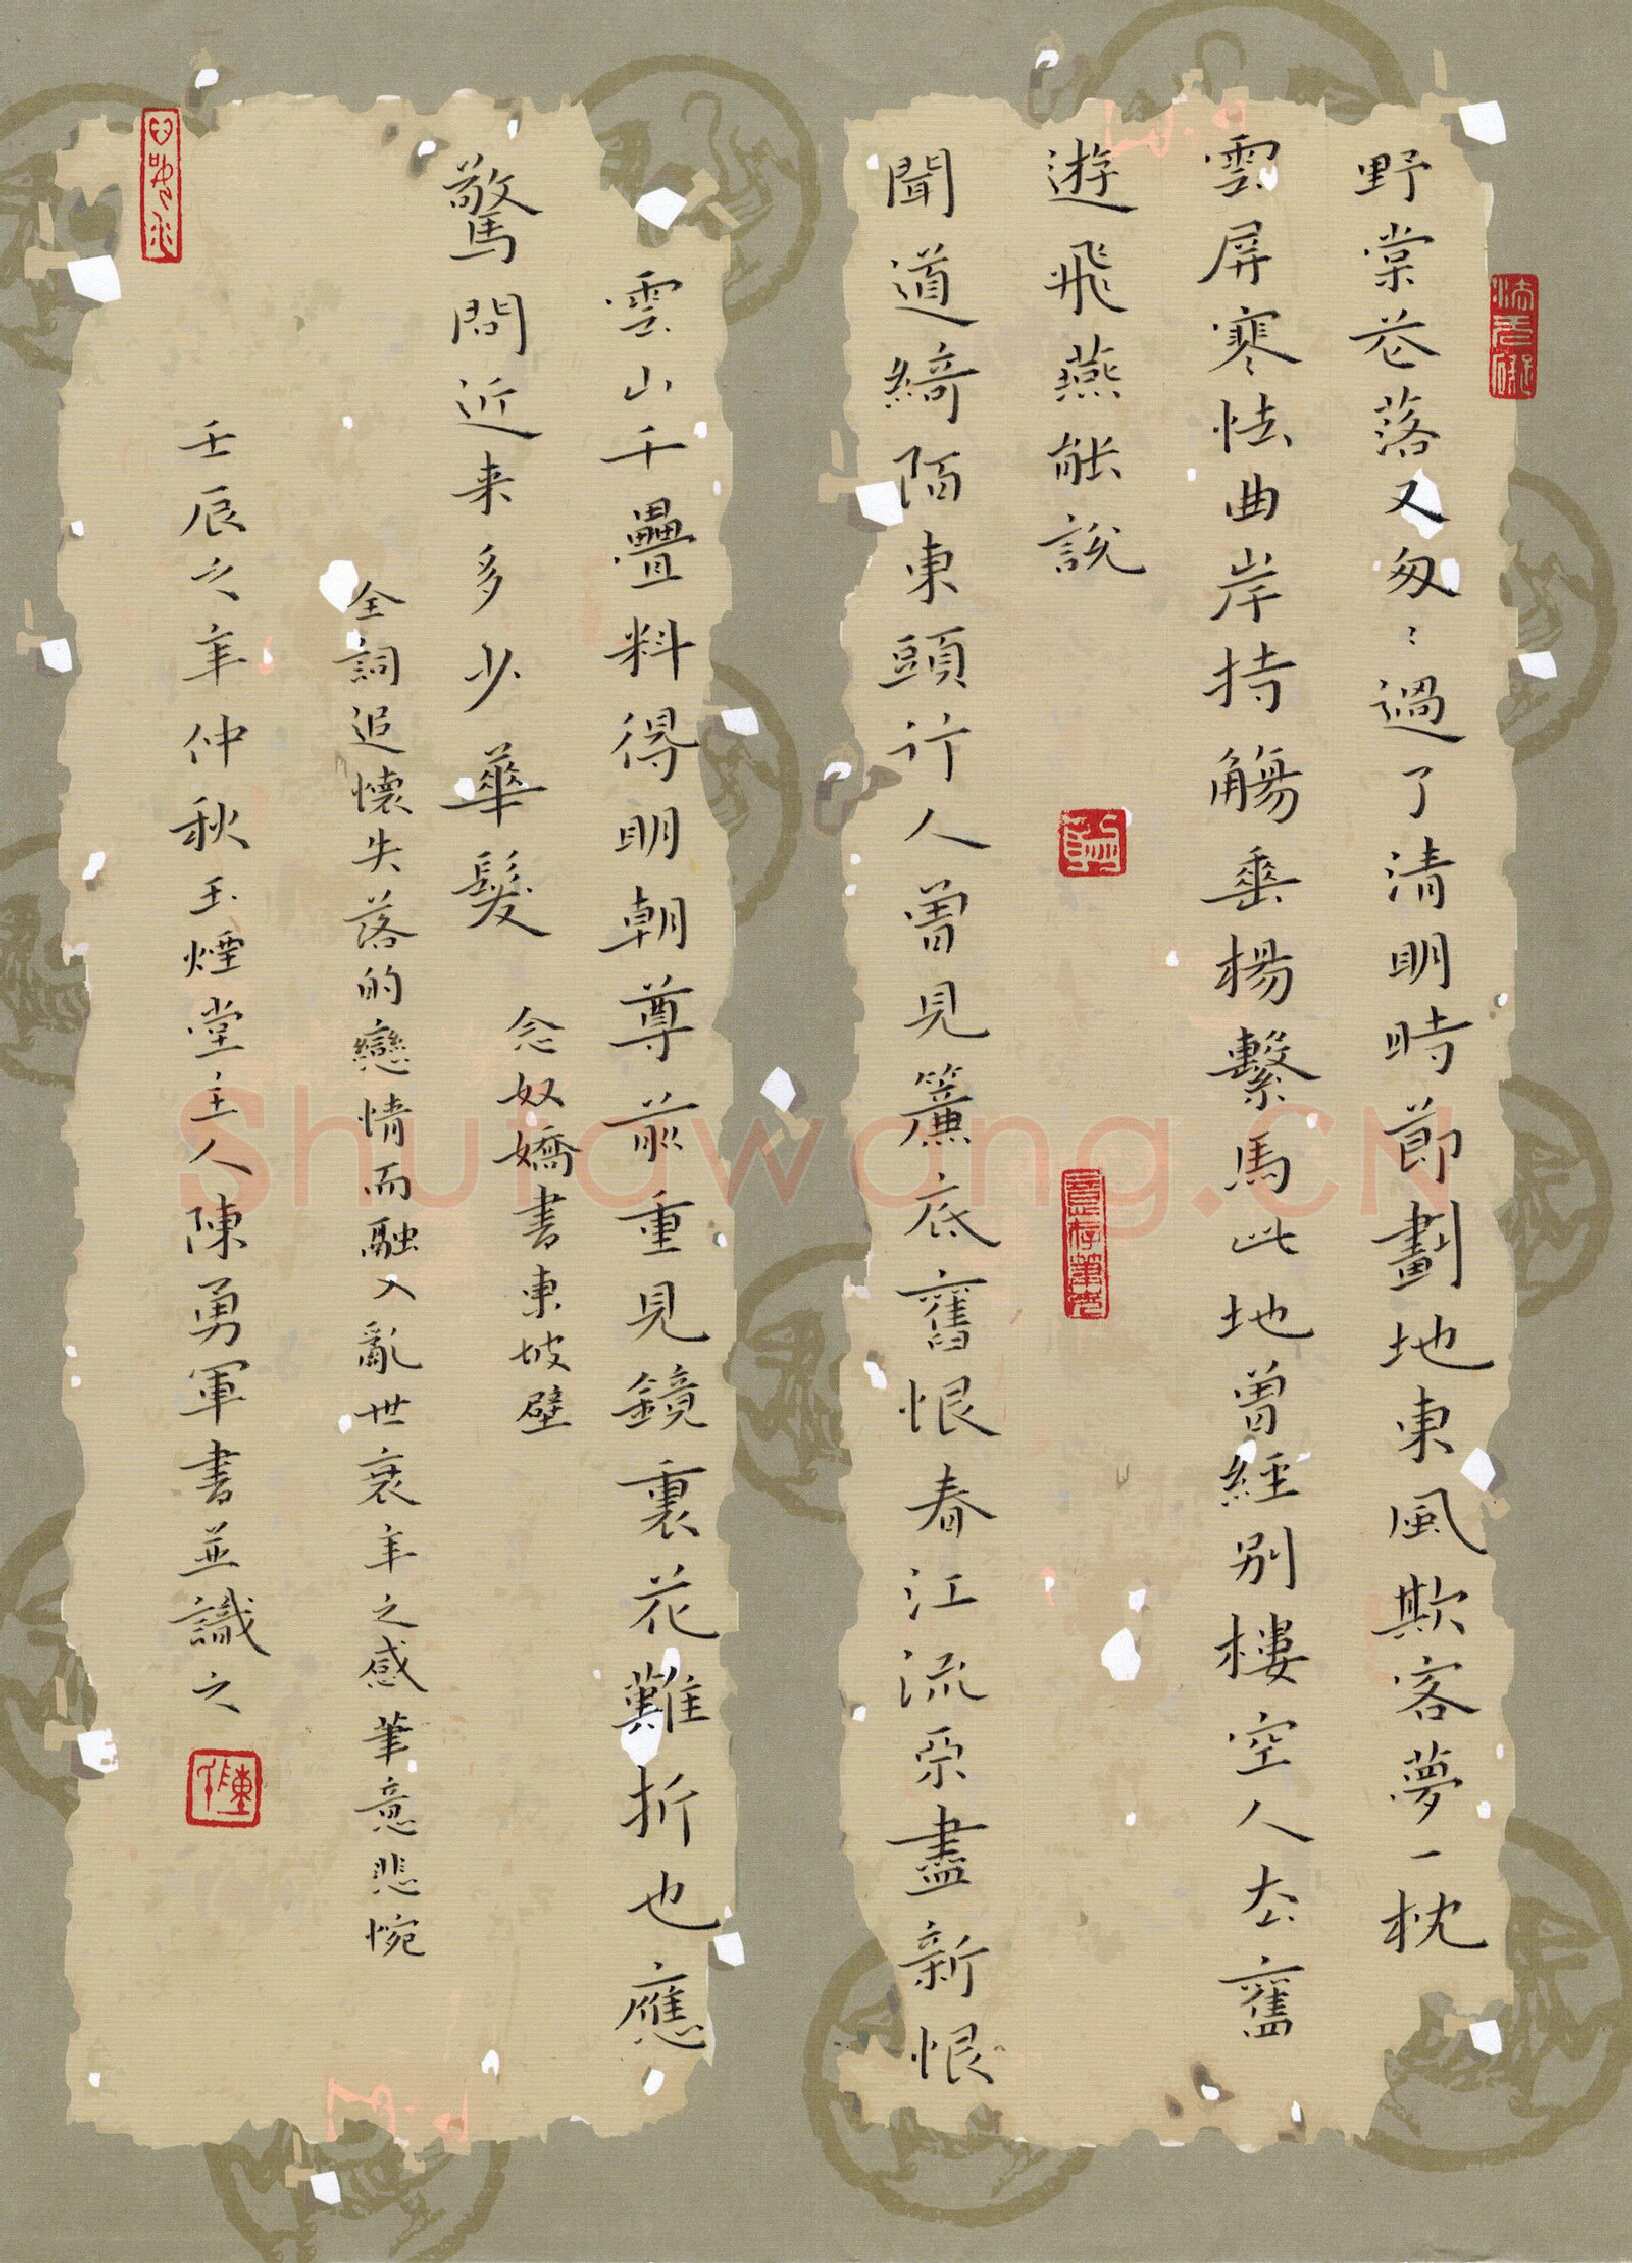 野棠花落又匆〻過了清明時節劃地東風欺客夢一枕
雲屏寒怯曲岸持觴垂楊繫馬此地曾經别樓空人去舊
遊飛燕能說
聞道綺陌東頭行人曾見簾底舊恨春江流不盡新恨
雲山千疊料得明朝尊前重見鏡裏花難折也應
驚問近来多少華髮
念奴嬌書東坡壁
全詞追懷失落的戀情而融入亂世衰年之感筆意悲惋
壬辰之年仲秋玉煙堂主人陳勇軍書並識之
意存筆先
Shufawang.CN